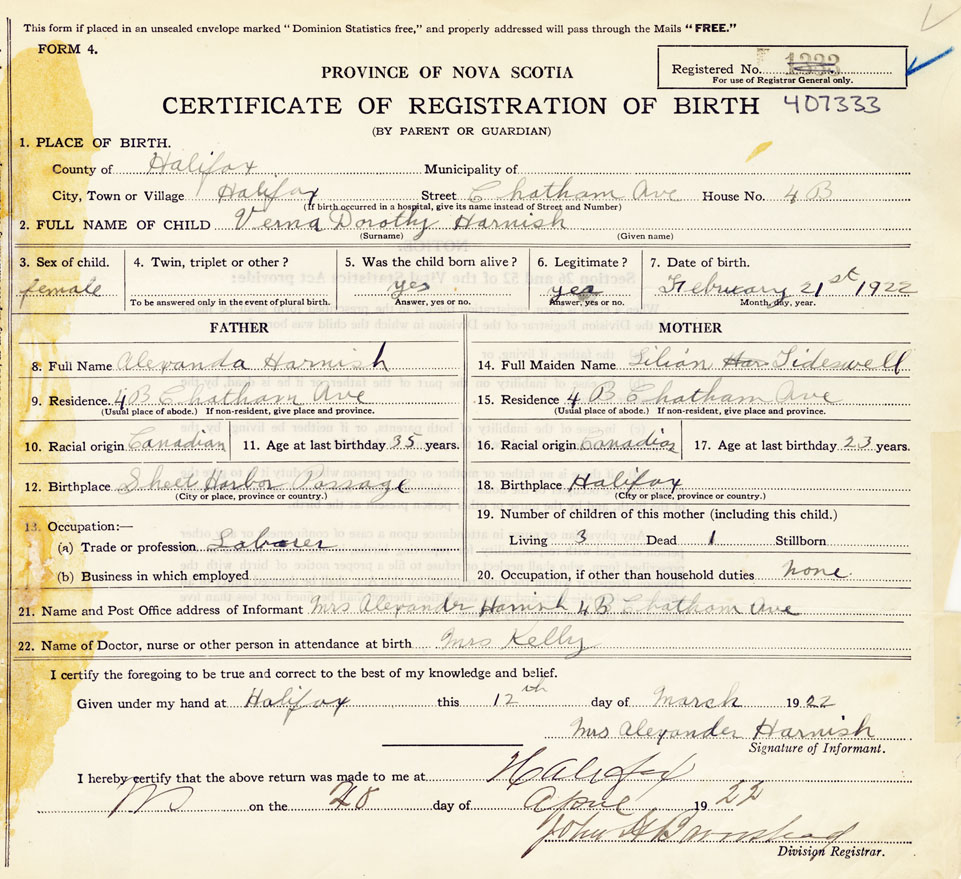 This form if placed in an unsealed envelope marked "Dominion Statistics free," and properly addressed will pass through the Mails "FREE."
FORM 4.
PROVINCE OF NOVA SCOTIA
Registered No. 1333
For use of Registrar General only.
CERTIFICATE OF REGISTRATION OF BIRTH 407333
(BY PARENT OR GUARDIAN)
1. PLACE OF BIRTH.
County of Halifax Municipality of
City, Town or Village Halifax Street Chatham Ave House No. 4 B
(If birth occurred in a hospital, give its name instead of Street and Number)
2. FULL NAME OF CHILD Verna Dorothy Harnish
(Surname) (Given name)
3. Sex of child. 4. Twin, triplet or other? 5. Was the child born alive? 6. Legitimate? 7. Date of birth.
female yes yes February 21st 1922
To be answered only in the event of plural birth. Answer, yes or no. Answer, yes or no. Month, day, year.
FATHER MOTHER
8. Full Name Alexanda Harnish 14. Full Maiden Name Lilian Har Tideswell
9. Residence 4 B Chatham Ave 15. Residence 4 B Chatham Ave
(Usual place of abode.) If non-resident, give place and province. (Usual place of abode.) If non-resident, give place and province.
10. Racial origin Canadian 11. Age at last birthday 35 years. 16. Racial origin Canadian 17. Age at last birthday 23 years.
12. Birthplace Sheet Harbor Passage 18. Birthplace Halifax
(City or place, province or country.) (City or place, province or country.)
13. Occupation:— 19. Number of children of this mother (including this child.)
(a) Trade or profession Laborer Living 3 Dead 1 Stillborn
(b) Business in which employed 20. Occupation, if other than household duties none.
21. Name and Post Office address of Informant Mrs Alexander Harnish 4 B Chatham Ave
22. Name of Doctor, nurse or other person in attendance at birth Mrs Kelly
I certify the foregoing to be true and correct to the best of my knowledge and belief.
Given under my hand at Halifax this 12th day of March 1922
Mrs Alexander Harnish
Signature of Informant.
I hereby certify that the above return was made to me at Halifax
on the 28 day of April 1922
John
Division Registrar.